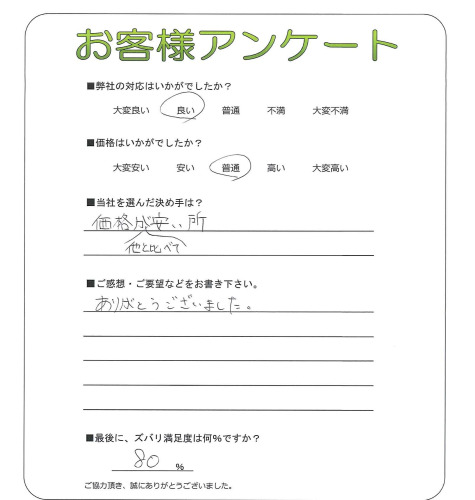 お客様アンケート
■弊社の対応はいかがでしたか？
大変良い 良い 普通 不満 大変不満
■価格はいかがでしたか？
大変安い 安い 普通 高い 大変高い
■当社を選んだ決め手は？
価格が安い所
他と比べて
■ご感想・ご要望などをお書き下さい。
ありがとうございました。
■最後に、ズバリ満足度は何%ですか？
80 %
ご協力頂き、誠にありがとうございました。